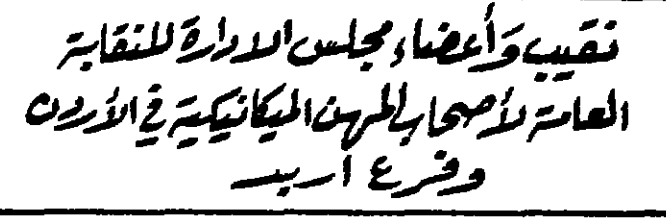 نقيب وأعضاء مجلس الادارة للنقابة
العامة لأصحاب المهن الميكانيكية في الأردن
وفرع اربد